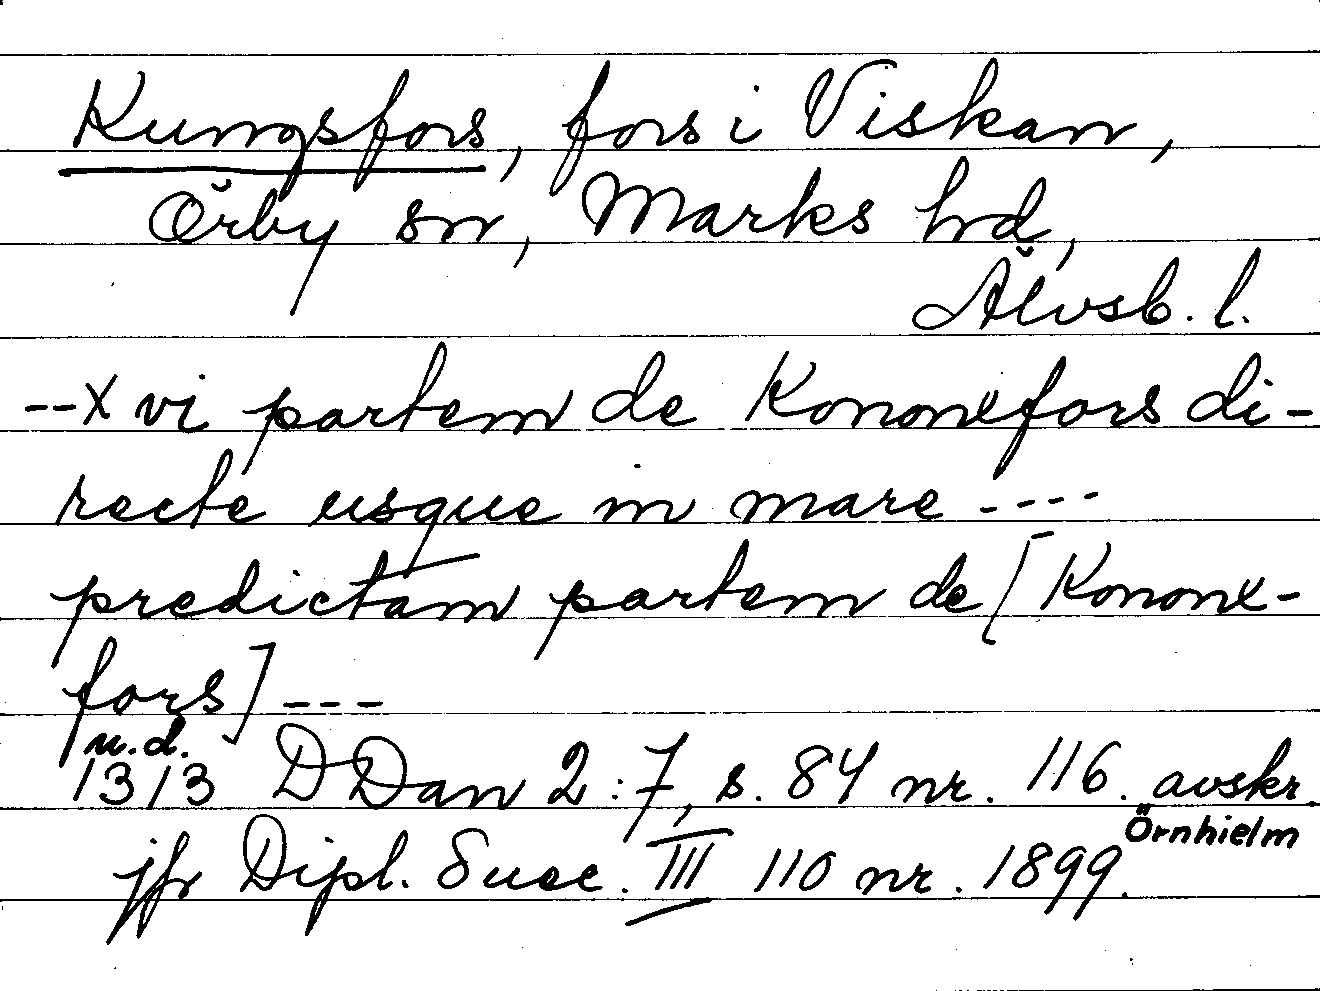 Kungsfors, fors i Viskan,
Örby sn, Marks hd,
Älvsb. l.
--X vi partem de Kononxfors di-
recte usque in mare ---
predictam partem de [Kononx-
fors] ---
u.d.
1313 DDan 2:7, s. 84 nr. 116. avskr.
Örnhielm
jfr Dipl. Suec. III 110 nr. 1899.